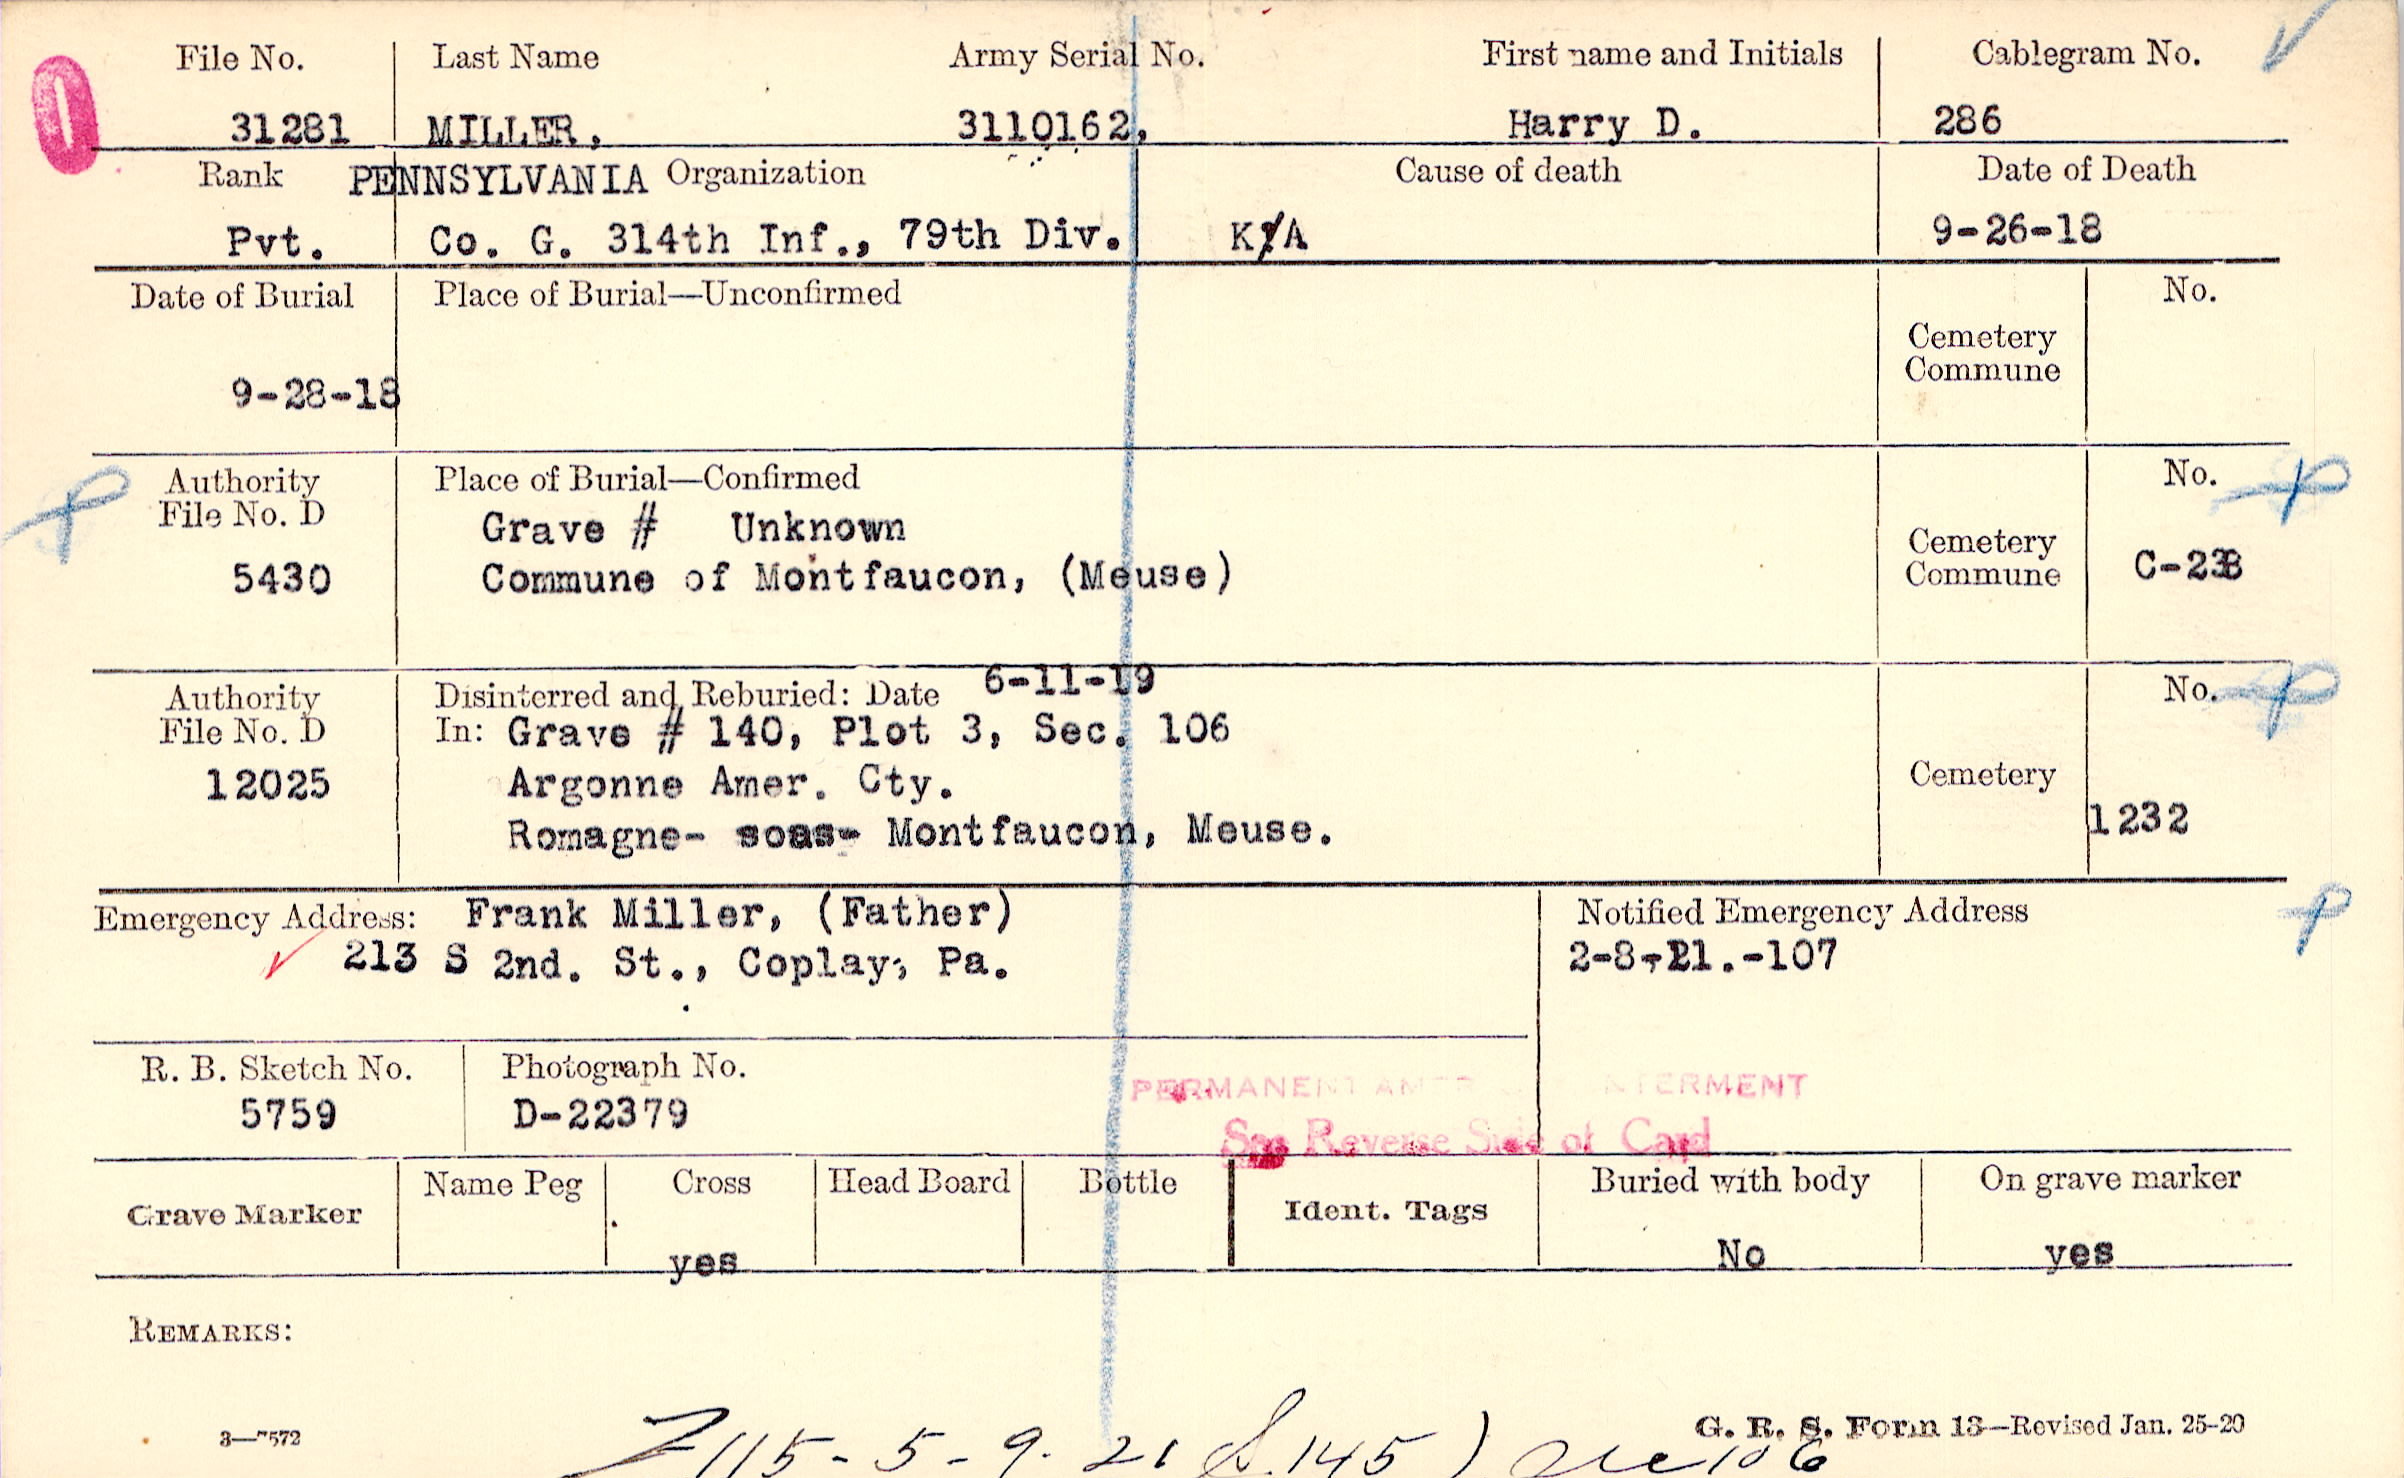 File No. Last Name Army Serial No. First name and Initials Cablegram No.
31281 MILLER, 3110162, Harry D. 286
Rank PENNSYLVANIA Organization Cause of death Date of Death
Pvt. Co. G. 314th Inf., 79th Div. K/A 9-26-18
Date of Burial Place of Burial—Unconfirmed No.
Cemetery
Commune
9-28-18
Authority Place of Burial—Confirmed No.
File No. D Grave # Unknown Cemetery
5430 Commune of Montfaucon, (Meuse) Commune C-238
Authority Disinterred and Reburied: Date 6-11-19 No.
File No. D In: Grave # 140, Plot 3, Sec. 106
12025 Argonne Amer. Cty. Cemetery
Romagne- sous- Montfaucon, Meuse. 1232
Emergency Address: Frank Miller, (Father) Notified Emergency Address
213 S 2nd. St., Coplay, Pa. 2-8-21.-107
R. B. Sketch No. Photograph No.
5759 D-22379
PERMANENT INTERMENT
See Reverse Side of Card
Name Peg Cross Head Board Bottle Buried with body On grave marker
Grave Marker Ident. Tags
yes No yes
REMARKS:
3—7572 G. R. S. Form 13—Revised Jan. 25-20
115-5-9.21 S.145) 106